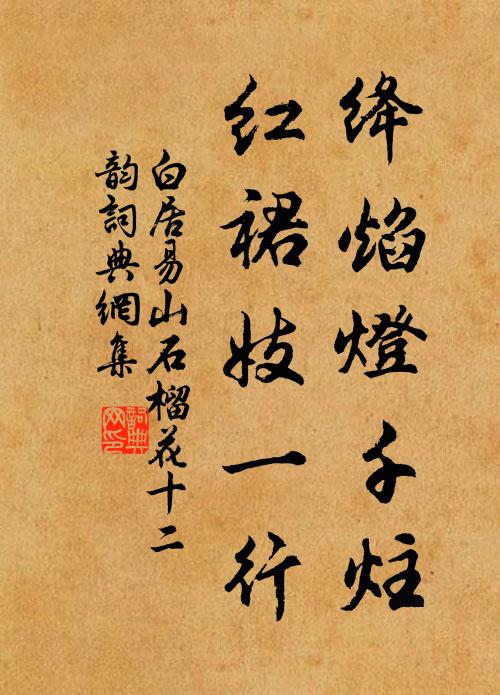 绛焰燈千炷
红裙妓一行
白居易山石榴花十二
韵詞典網集
詞典网印